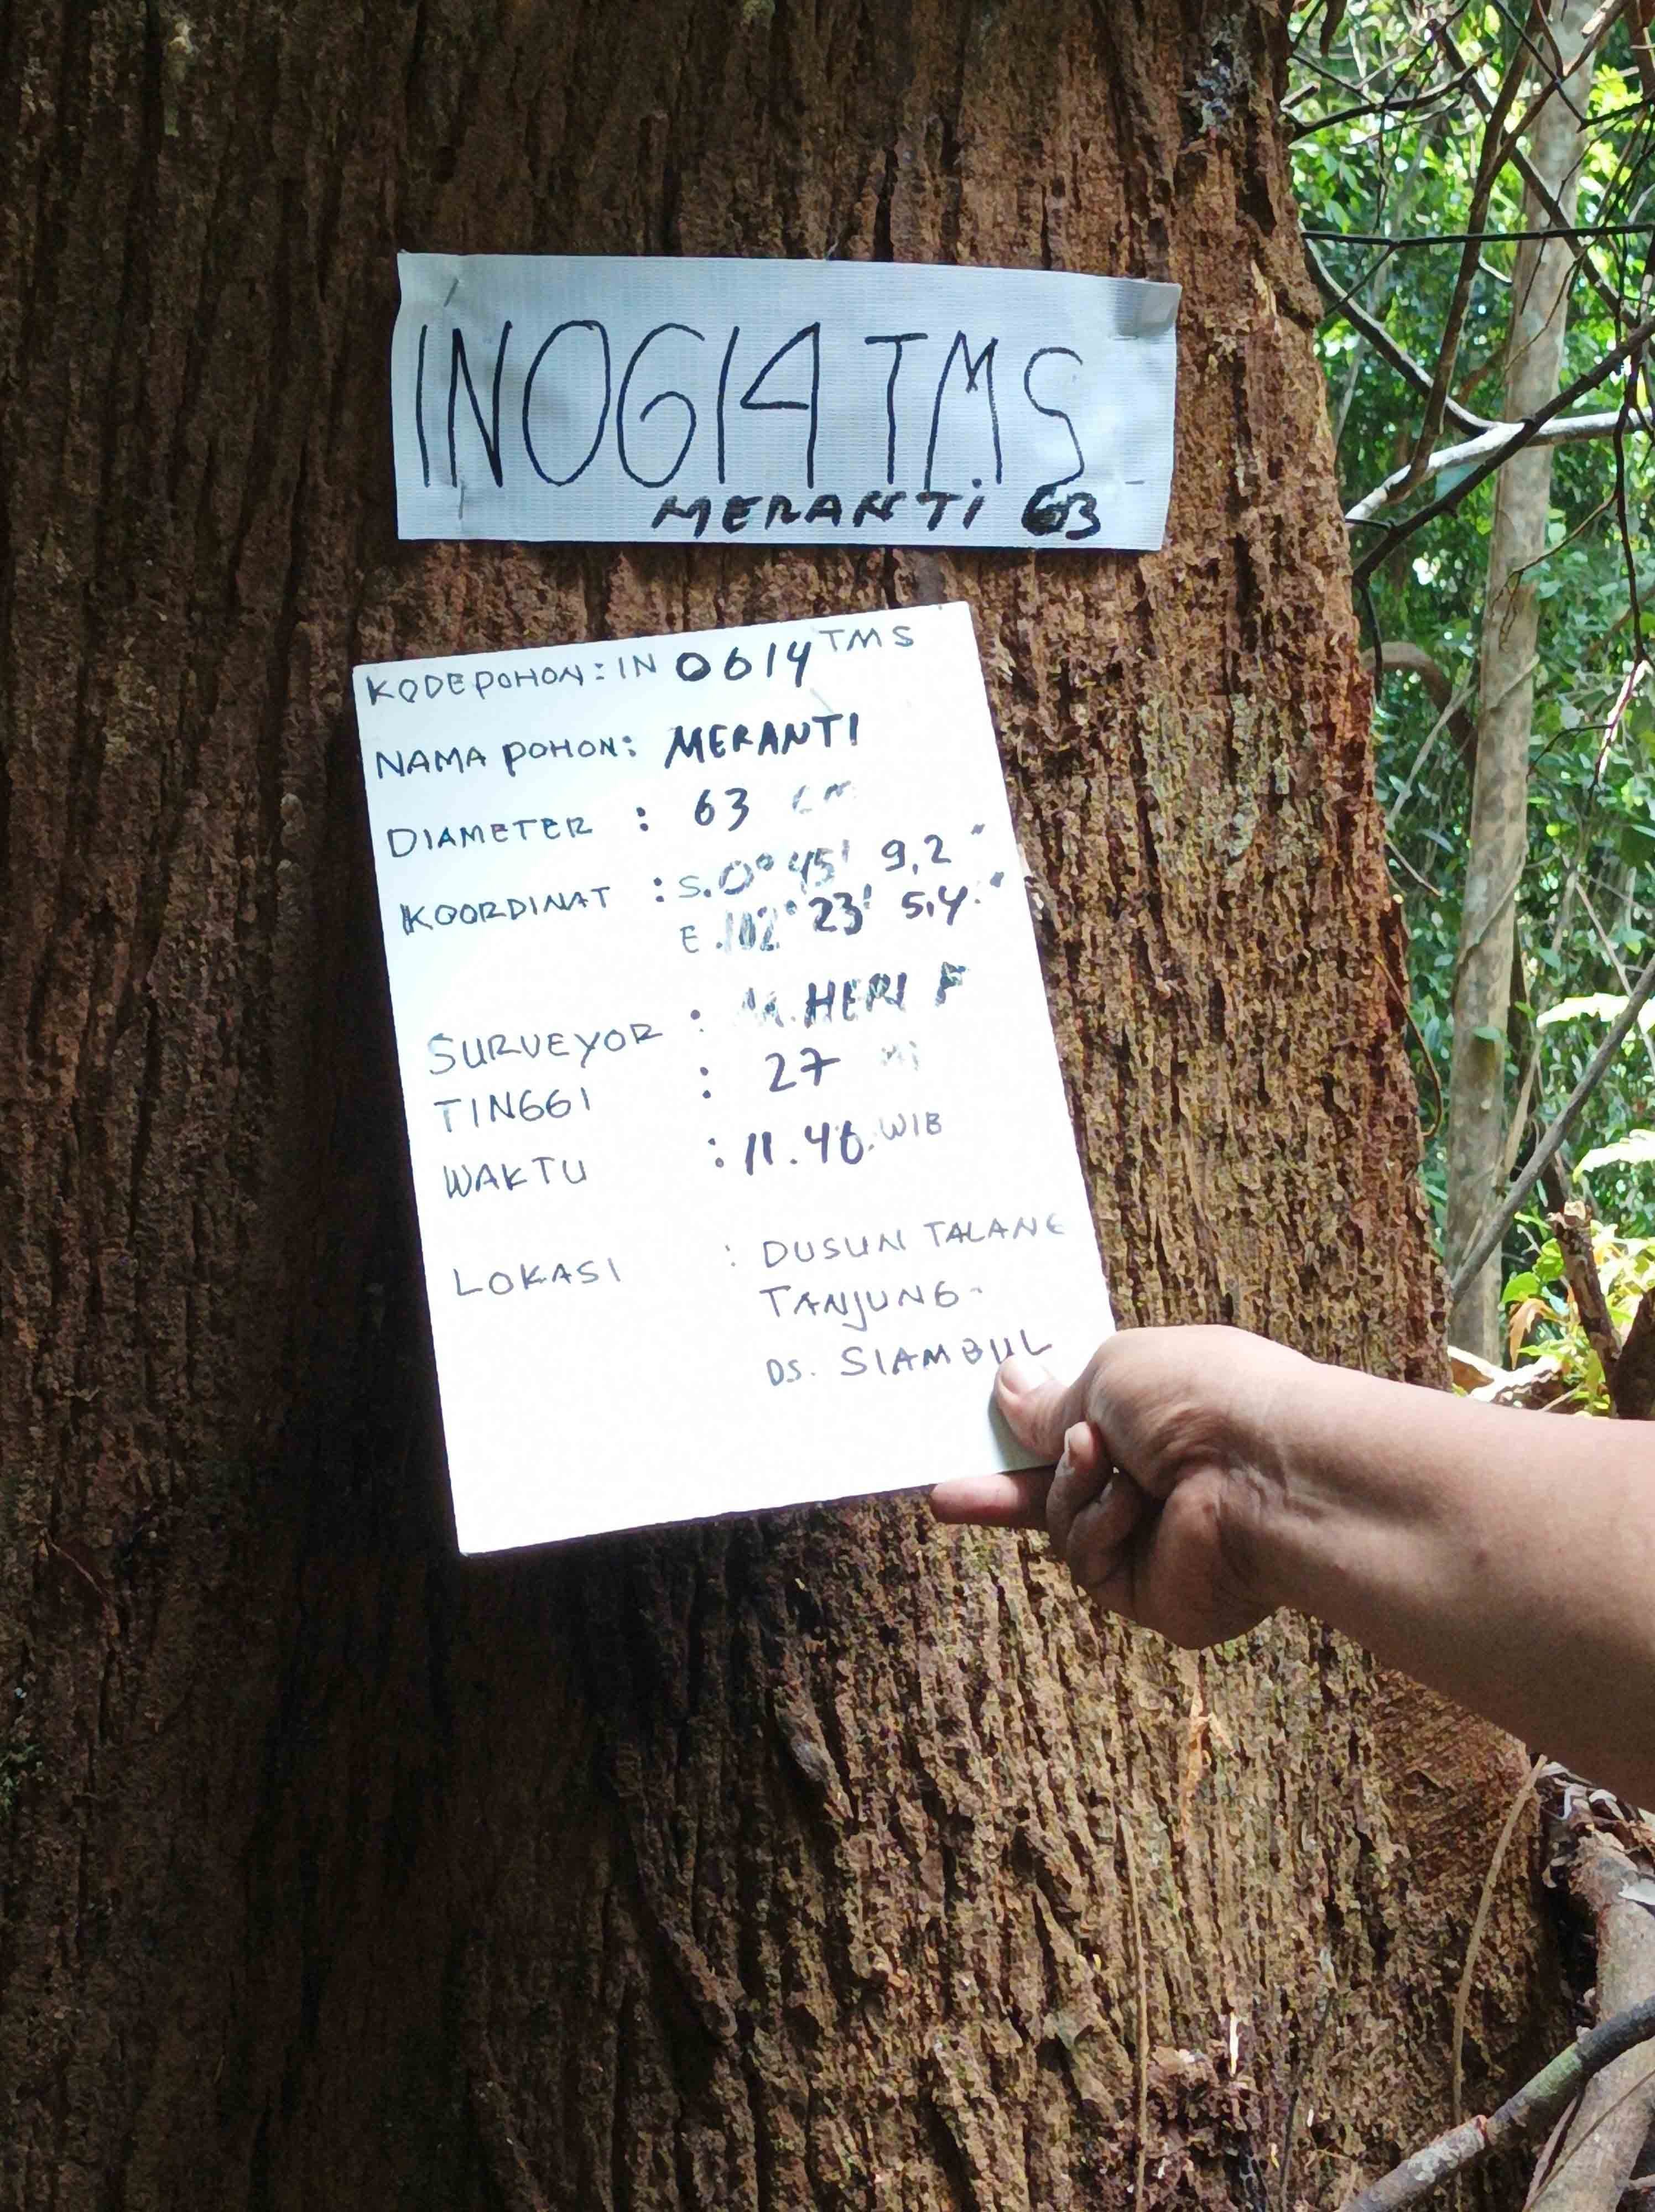 IN0614 TMS
MERANTI 63
KODE POHON : IN 0614 TMS
NAMA POHON : MERANTI
DIAMETER : 63 cm
KOORDINAT : S. 0° 45' 9,2"
E. 102° 23' 5,4"
SURVEYOR : M. HERI F
TINGGI : 27
WAKTU : 11.46 WIB
LOKASI : DUSUN TALANG
TANJUNG
DS. SIAMBUL